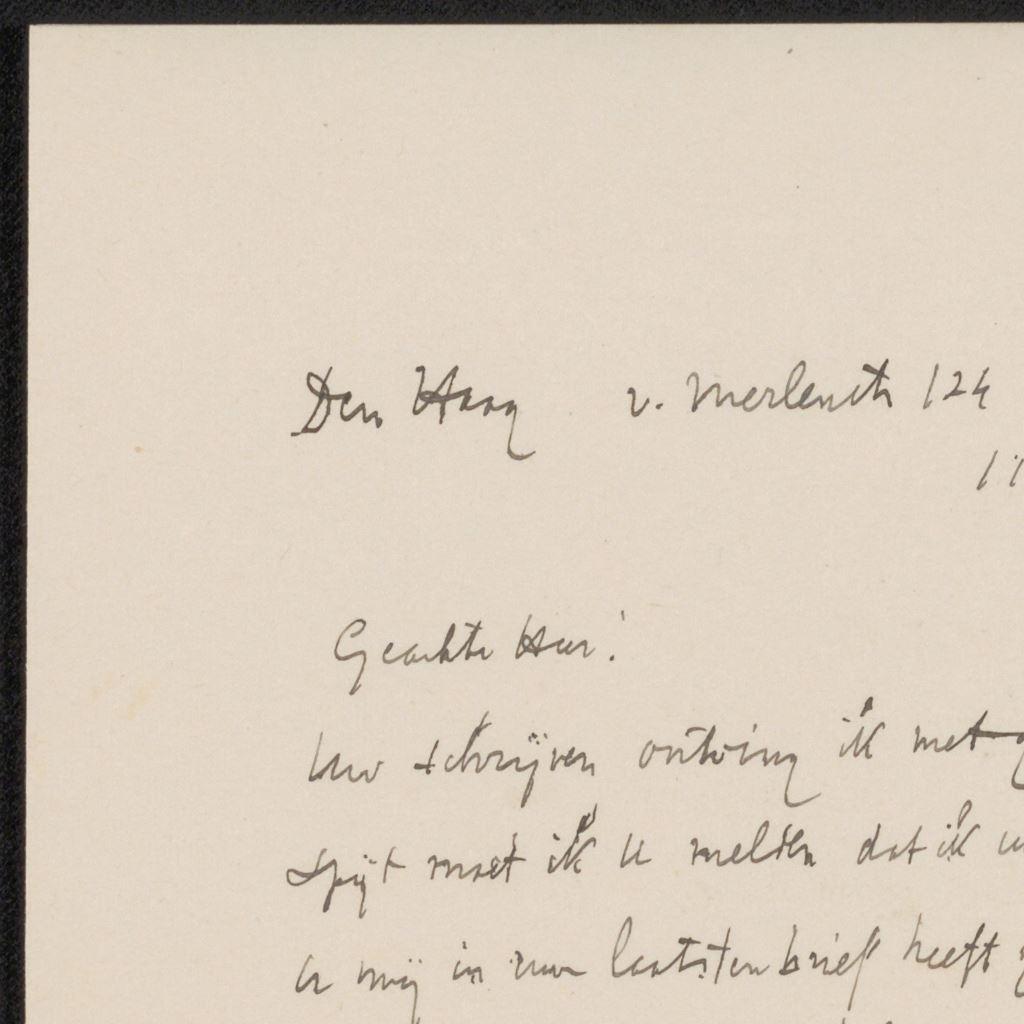 Den Haag v. Merlenstr 124
Geachte Heer!
Uw schrijven ontving ik met
spijt moet ik U melden dat ik
U mij in uw laatsten brief heeft